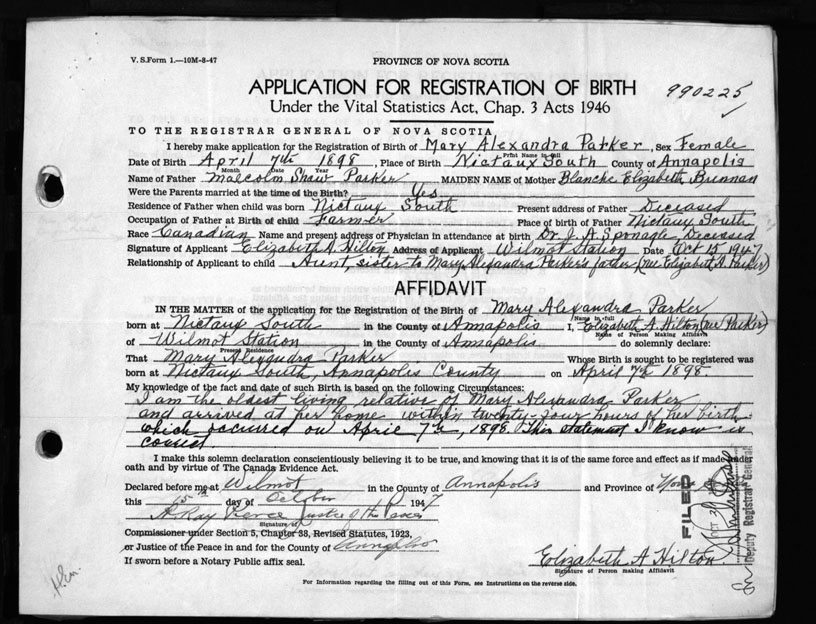 V. S. Form 1.—10M-8-47
PROVINCE OF NOVA SCOTIA
APPLICATION FOR REGISTRATION OF BIRTH
990225
Under the Vital Statistics Act, Chap. 3 Acts 1946
TO THE REGISTRAR GENERAL OF NOVA SCOTIA
I hereby make application for the Registration of Birth of Mary Alexandra Parker, Sex Female
Print Name in full
Date of Birth April 7th 1898, Place of Birth Nictaux South County of Annapolis
Month Date Year
Name of Father Malcolm Shaw Parker MAIDEN NAME of Mother Blanche Elizabeth
Were the Parents married at the time of the Birth? Yes
Residence of Father when child was born Nictaux South Present address of Father Deceased
Occupation of Father at Birth of child Farmer Place of birth of Father Nictaux South
Race Canadian Name and present address of Physician in attendance at birth Dr. J. A. Sponagle Deceased
Signature of Applicant Elizabeth A. Hilton Address of Applicant Wilmot Station Date Oct 15 1947
Relationship of Applicant to child Aunt, sister to Mary Alexandra Parker's father (née Elizabeth A. Parker)
AFFIDAVIT
IN THE MATTER of the application for the Registration of the Birth of Mary Alexandra Parker
Name in full
born at Nictaux South in the County of Annapolis I, Elizabeth A. Hilton (née Parker)
Name of Person Making Affidavit
of Wilmot Station in the County of Annapolis do solemnly declare:
Present Residence
That Mary Alexandra Parker Whose Birth is sought to be registered was
born at Nictaux South, Annapolis County on April 7th 1898.
My knowledge of the fact and date of such Birth is based on the following Circumstances:
I am the oldest living relative of Mary Alexandra Parker
and arrived at her home within twenty-four hours of her birth
which occurred on April 7th, 1898. This statement I know is
correct
I make this solemn declaration conscientiously believing it to be true, and knowing that it is of the same force and effect as if made under
oath and by virtue of The Canada Evidence Act.
Declared before me at Wilmot in the County of Annapolis and Province of Nova
this 15th day of October 1947
A. Ray Justice of the Peace
Signature of
Commissioner under Section 5, Chapter 38, Revised Statutes, 1923,
or Justice of the Peace in and for the County of Annapolis
If sworn before a Notary Public affix seal.
Elizabeth A Hilton
Signature of Person making Affidavit
For Information regarding the filling out of this Form, see Instructions on the reverse side.
FILED
Deputy Registrar General